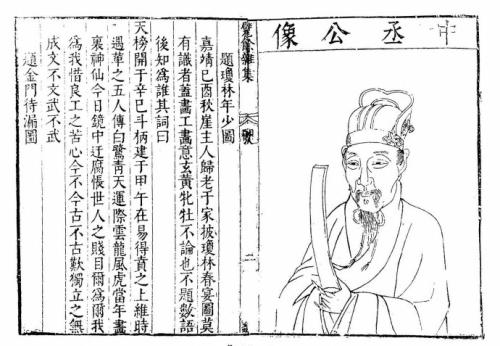 中丞公像
甓餘雜集
二
題瓊林年少圖
嘉靖己酉秋崖主人歸老于家披瓊林春宴圖莫
有識者蓋畫工畫意玄黃牝牡不論也不題數語
後知為誰其詞曰
天榜開于辛巳斗柄建于甲午在易得賁之上維時
遇革之五人傳白鷺青天運際雲龍風虎當年畫
裏神仙今日鏡中迂腐悵世人之賤目爾為爾我
為我惜良工之苦心今不今古不古歎獨立之無
成文不文武不武
題金門待漏圖